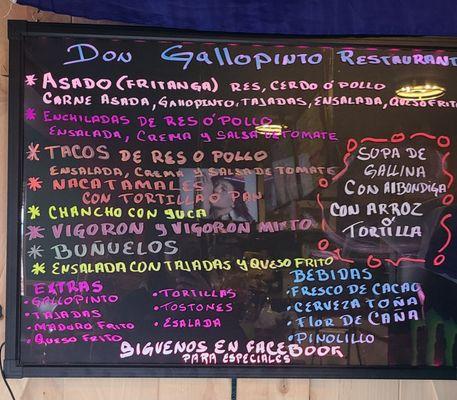 Don Gallopinto Restaurant
* ASADO (FRITANGA) RES, CERDO Ó POLLO
CARNE ASADA, GALLOPINTO, TAJADAS, ENSALADA, QUESO FRITO
* ENCHILADAS DE RES O POLLO
ENSALADA, CREMA Y SALSA DE TOMATE
* TACOS DE RES O POLLO
ENSALADA, CREMA Y SALSA DE TOMATE
* NACATAMALES
CON TORTILLA O PAN
* CHANCHO CON YUCA
* VIGORON Y VIGORON MIXTO
* BUÑUELOS
* ENSALADA CON TAJADAS Y QUESO FRITO
SOPA DE
GALLINA
CON ALBONDIGA
CON ARROZ
Ó
TORTILLA
EXTRAS
• GALLOPINTO
• TAJADAS
• MADURO FRITO
• QUESO FRITO
• TORTILLAS
• TOSTONES
• ESALADA
BEBIDAS
• FRESCO DE CACAO
• CERVEZA TOÑA
• FLOR DE CAÑA
• PINOLILLO
SIGUENOS EN FACEBOOK
PARA ESPECIALES